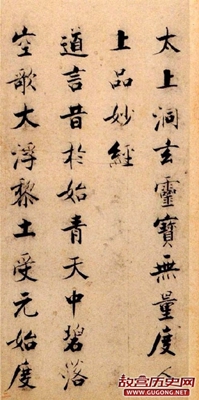 太上洞玄靈寶無量度人
上品妙經
道言昔於始青天中碧落
空歌大浮黎土受元始度
故宫历史网
WWW.GUGONG.NET